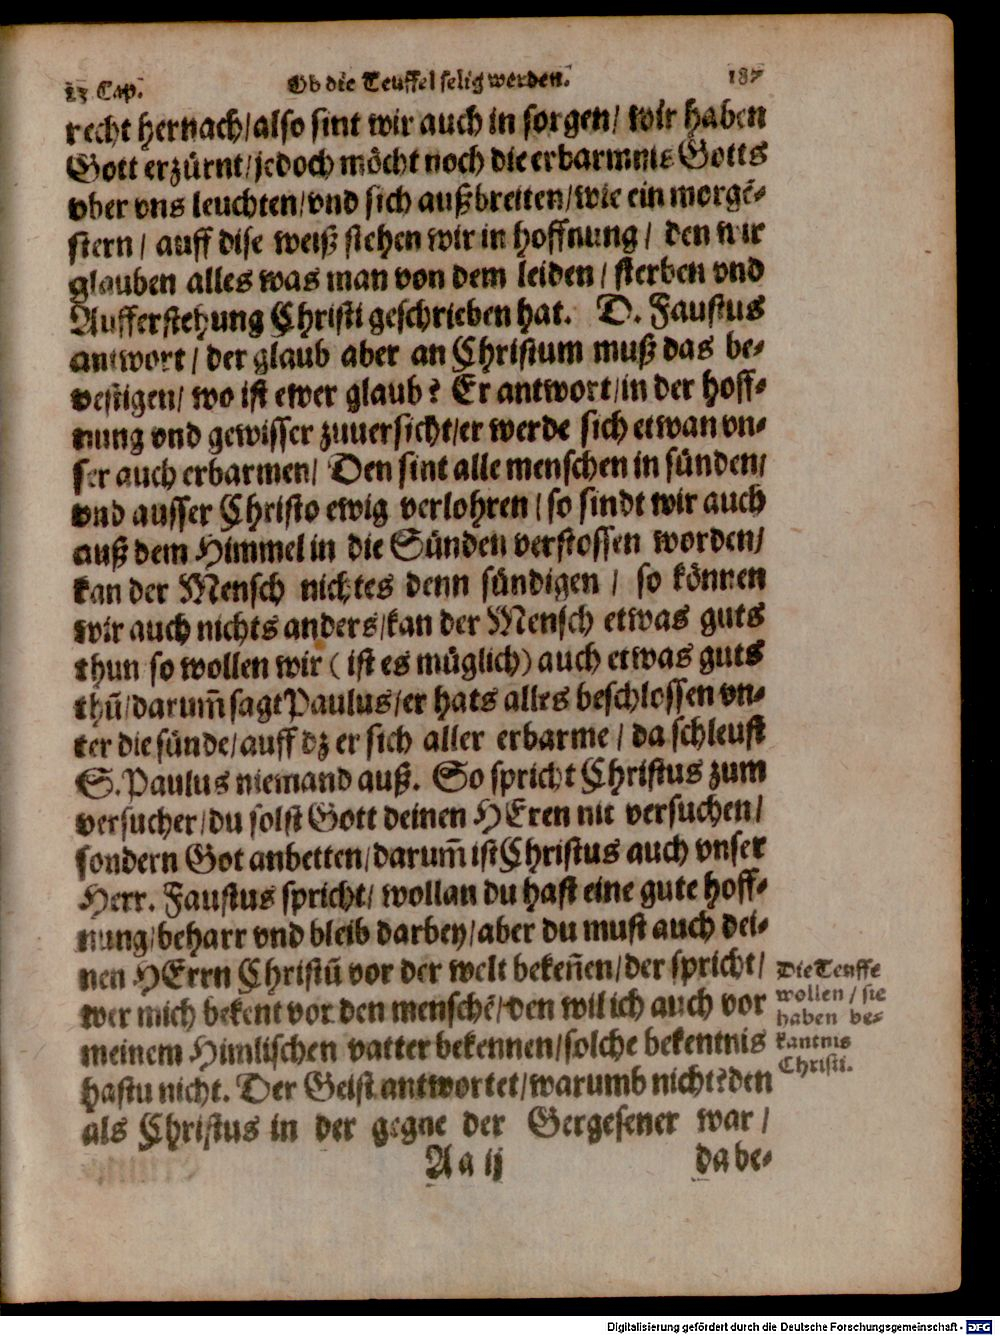 23 Cap. Ob die Teuffel selig werden. 187
recht hernach/also sint wir auch in sorgen/ wir haben
Gott erzürnt/jedoch möcht noch die erbarmnis Gotts
vber vns leuchten/vnd sich außbreiten/wie ein morgē-
stern/ auff dise weiß stehen wir in hoffnung/ den wir
glauben alles was man von dem leiden/ sterben vnd
Aufferstehung Christi geschrieben hat. D. Faustus
antwort/ der glaub aber an Christum muß das be-
vestigen/ wo ist ewer glaub? Er antwort/in der hoff-
nung vnd gewisser zuuersicht/er werde sich etwan vn-
ser auch erbarmen/ Den sint alle menschen in sünden/
vnd ausser Christo ewig verlohren/so sindt wir auch
auß dem Himmel in die Sünden verstossen worden/
kan der Mensch nichtes denn sündigen/ so können
wir auch nichts anders/kan der Mensch etwas guts
thun so wollen wir (ist es müglich) auch etwas guts
thū/darum̄ sagt Paulus/er hats alles beschlossen vn-
ter die sünde/auff dz er sich aller erbarme/ da schleust
S. Paulus niemand auß. So spricht Christus zum
versucher/du solst Gott deinen HEren nit versuchen/
sondern Got anbetten/darum̄ ist Christus auch vnser
Herr. Faustus spricht/ wollan du hast eine gute hoff-
nung/beharr vnd bleib darbey/aber du must auch dei-
nen HErrn Christū vor der welt beken̄en/der spricht/
wer mich bekent vor den menschē/den wil ich auch vor
meinem Himlischen vatter bekennen/solche bekentnis
hastu nicht. Der Geist antwortet/warumb nicht?den
als Christus in der gegne der Gergesener war/
Die Teuffe
wollen/ sie
haben be-
kantnis
Christi.
A a ij da be-
Digitalisierung gefördert durch die Deutsche Forschungsgemeinschaft - DFG